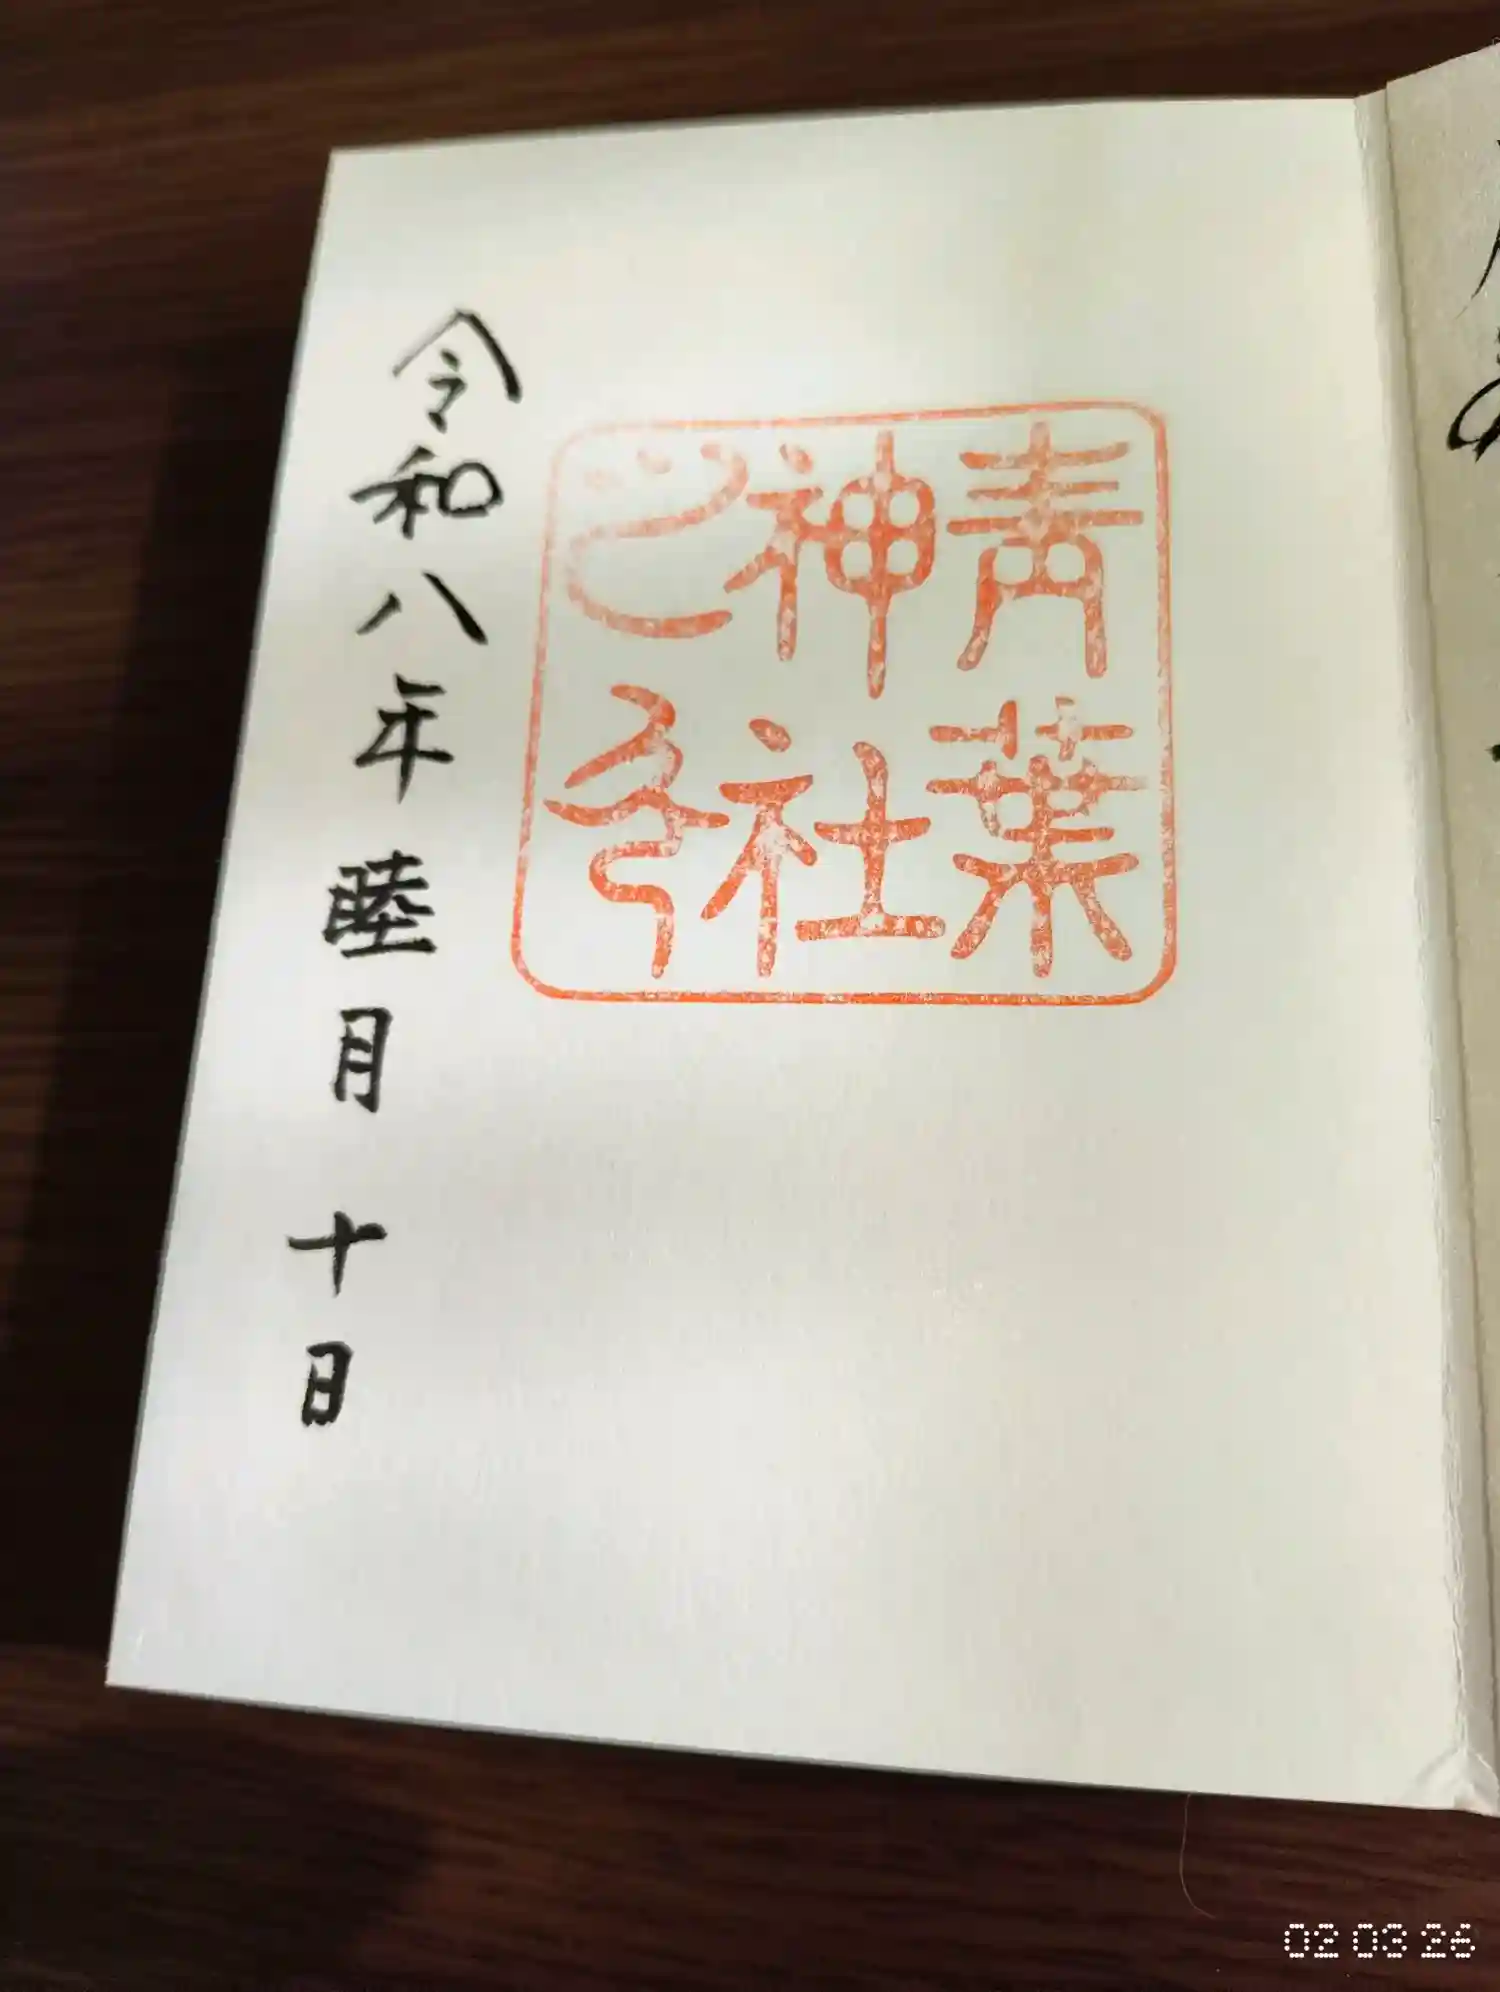 青葉
神社
之印
令和八年睦月十日
02 03 26